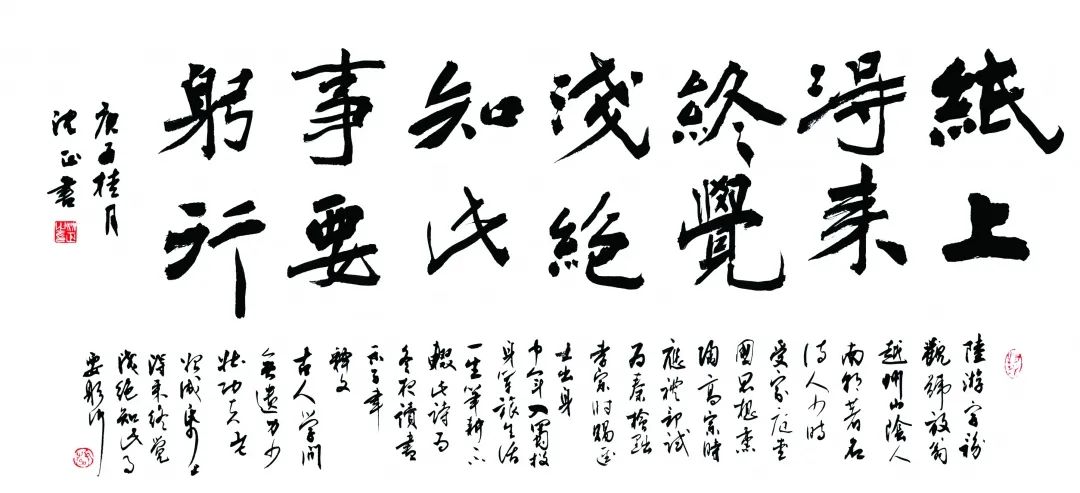 紙上
得来
終覺
淺絕
知此
事要
躬行
庚子桂月
正書
陸游字務
觀號放翁
越州山陰人
南宋著名
詩人少時
受家庭愛
國思想熏
陶高宗時
應禮部試
為秦檜黜
孝宗時賜進
士出身
中年入蜀投
身軍旅生活
一生筆耕不
輟此詩為
冬夜讀書
示子聿
釋文
古人學問
無遺力少
壯功夫老
始成紙上
得来終覺
淺絕知此事
要躬行